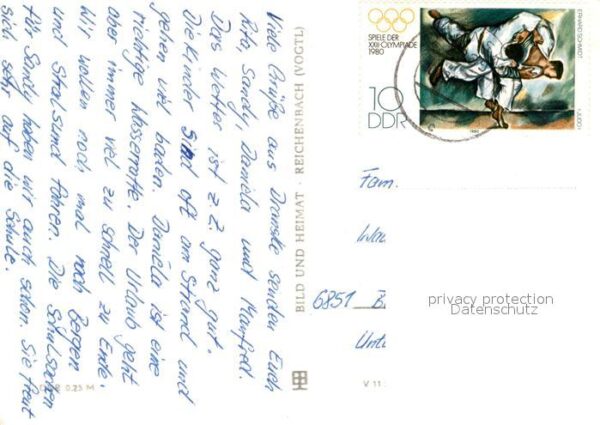 Viele Grüße aus Dranske senden Euch
Rita, Sandy, Daniéla und Manfred.
Das Wetter ist z.Z. ganz gut.
Die Kinder sind oft am Strand und
gehen viel baden. Daniéla ist eine
richtige Wasserratte. Der Urlaub geht
aber immer viel zu schnell zu Ende.
Wir wollen noch mal nach Bergen
und Stralsund fahren. Die Schulsachen
für Sandy haben wir auch schon. Sie freut
sich sehr auf die Schule.
0,25 M
BILD UND HEIMAT · REICHENBACH (VOGTL)
V 11
SPIELE DER
XXII. OLYMPIADE
1980
10
DDR
ERHARD SCHMIDT
JUDO
1980
Fam.
6851
privacy protection
Datenschutz